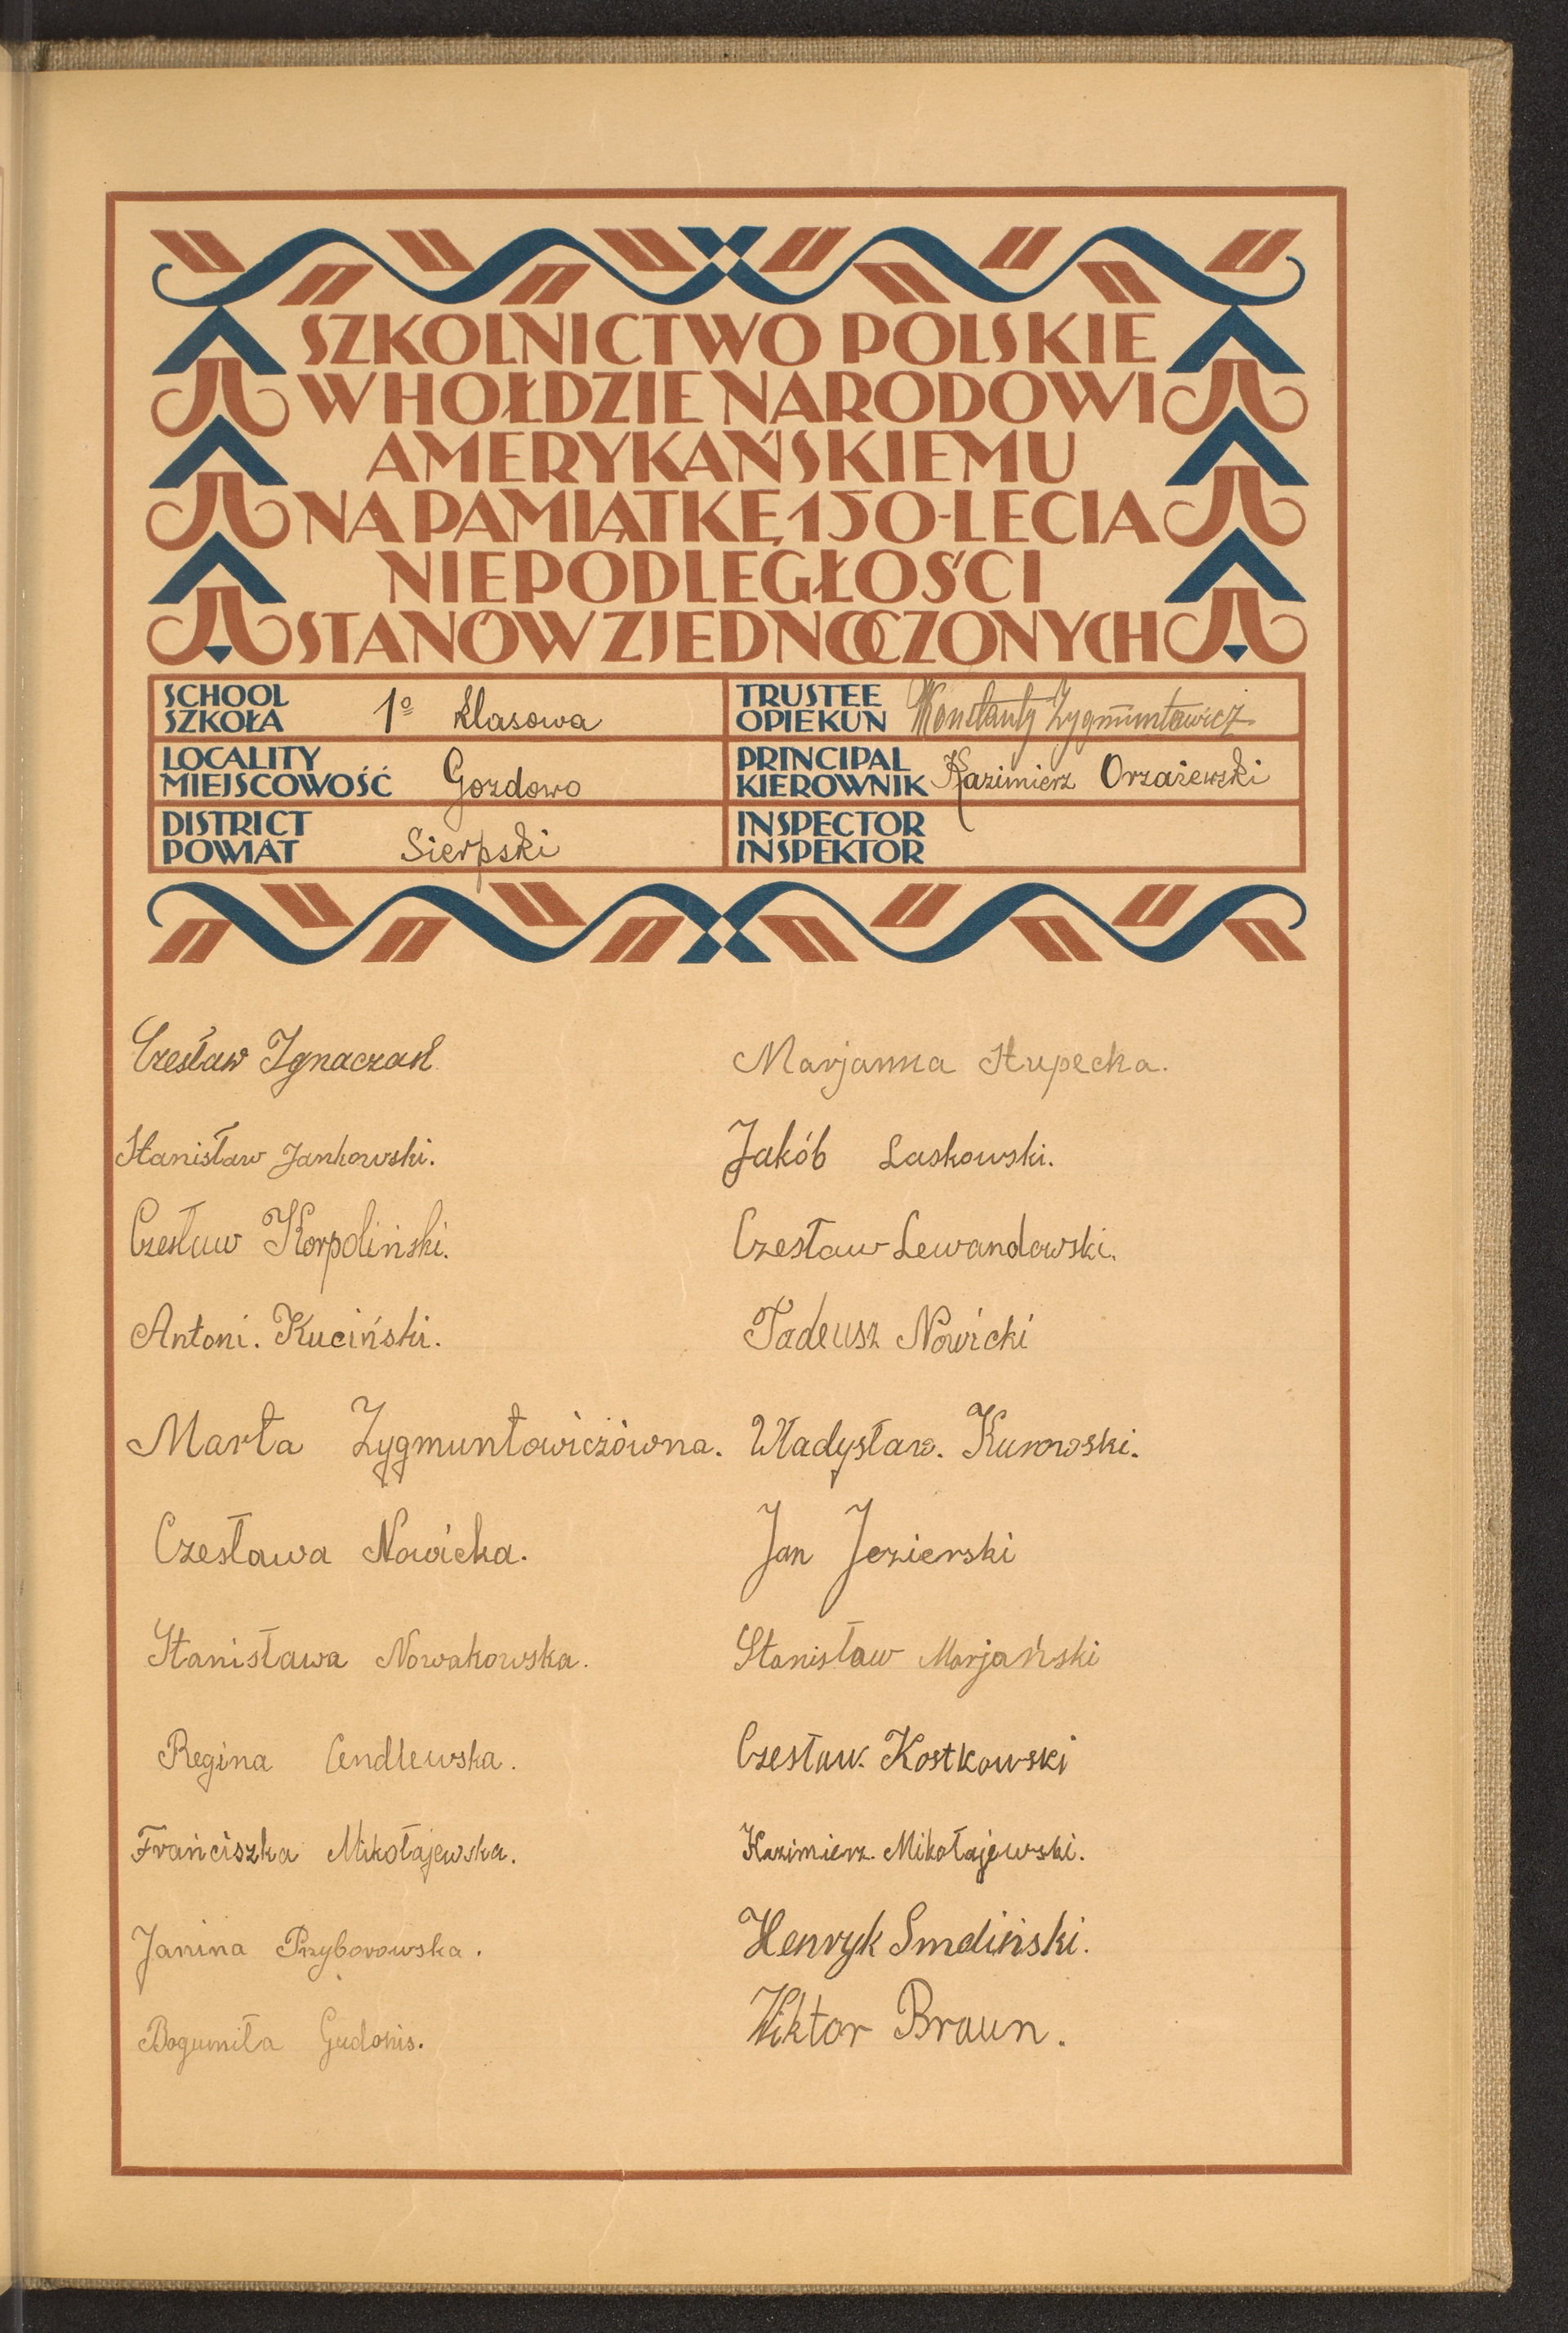 SZKOLNICTWO POLSKIE
W HOŁDZIE NARODOWI
AMERYKAŃSKIEMU
NA PAMIĄTKĘ 150-LECIA
NIEPODLEGŁOŚCI
STANÓW ZJEDNOCZONYCH
SCHOOL
SZKOŁA 1º klasowa
LOCALITY
MIEJSCOWOŚĆ Gozdowo
DISTRICT
POWIAT Sierpski
TRUSTEE
OPIEKUN Konstanty Zygmuntowicz
PRINCIPAL
KIEROWNIK Kazimierz Orzażewski
INSPECTOR
INSPEKTOR
Czesław Ignaczak
Stanisław Jankowski.
Czesław Korpoliński.
Antoni. Kuciński.
Marta Zygmuntowiczówna.
Czesława Nowicka.
Stanisława Nowakowska.
Regina Cendlewska.
Franciszka Mikołajewska.
Janina Przyborowska.
Bogumiła Gudonis.
Marjanna Słupecka.
Jakób Laskowski.
Czesław Lewandowski.
Tadeusz Nowicki
Władysław. Kurowski.
Jan Jezierski
Stanisław Marjański
Czesław. Kostkowski
Kazimierz. Mikołajewski.
Henryk Smoliński.
Wiktor Braun.